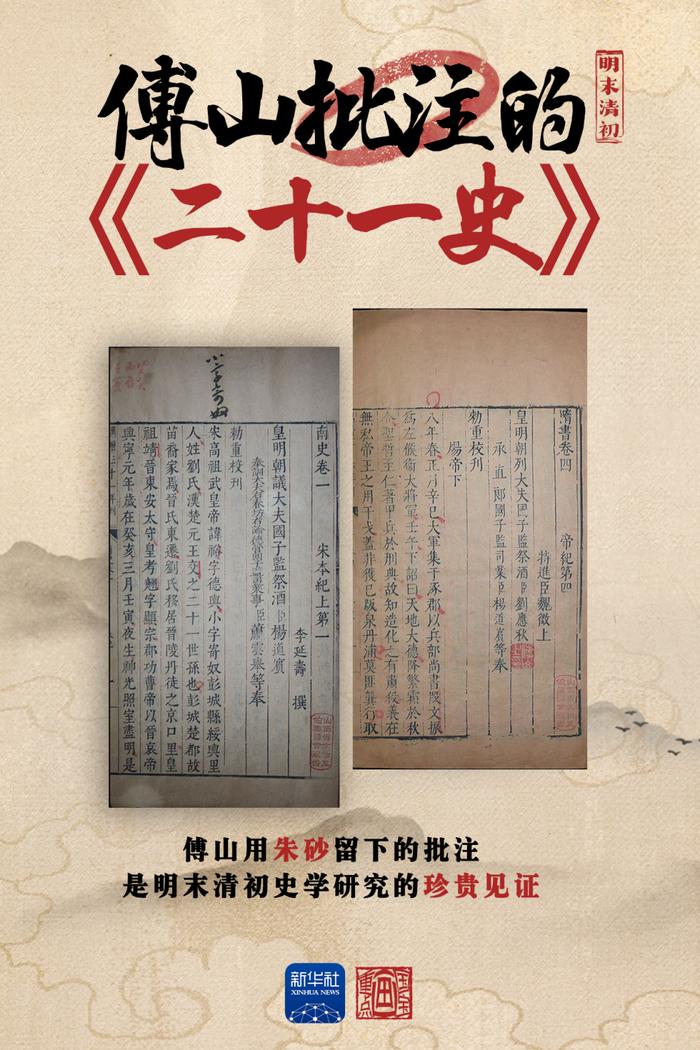 傅山批注的
明末清初
《二十一史》
小字寄奴
南史卷一 宋本紀上第一
李延壽 撰
皇明朝議大夫國子監祭酒臣楊道賓
蕭雲舉等奉
勅重校刊
宋高祖武皇帝諱裕字德輿小字寄奴彭城縣綏輿里
人姓劉氏漢楚元王交之二十一世孫也彭城楚都故
苗裔家焉晉氏東遷劉氏移居晉陵丹徒之京口里皇
祖靖晉東安太守皇考翹字顯宗郡功曹帝以晉哀帝
興寧元年歲在癸亥三月壬寅夜生神光照室盡明是
隋書卷四 帝紀第四
特進臣魏徵上
皇明朝列大夫國子監祭酒臣劉應秋
承直郎國子監司業臣楊道賓等奉
勅重校刊
煬帝下
八年春正月辛巳大軍集于涿郡以兵部尚書段文振
為左候衛大將軍壬午下詔曰天地大德降繁霜於秋
令聖哲至仁著甲兵於刑典故知造化之有肅殺義在
無私帝王之用干戈蓋非獲已版泉丹浦莫匪龔行取
傅山用朱砂留下的批注
是明末清初史学研究的珍贵见证
新华社
XINHUA NEWS